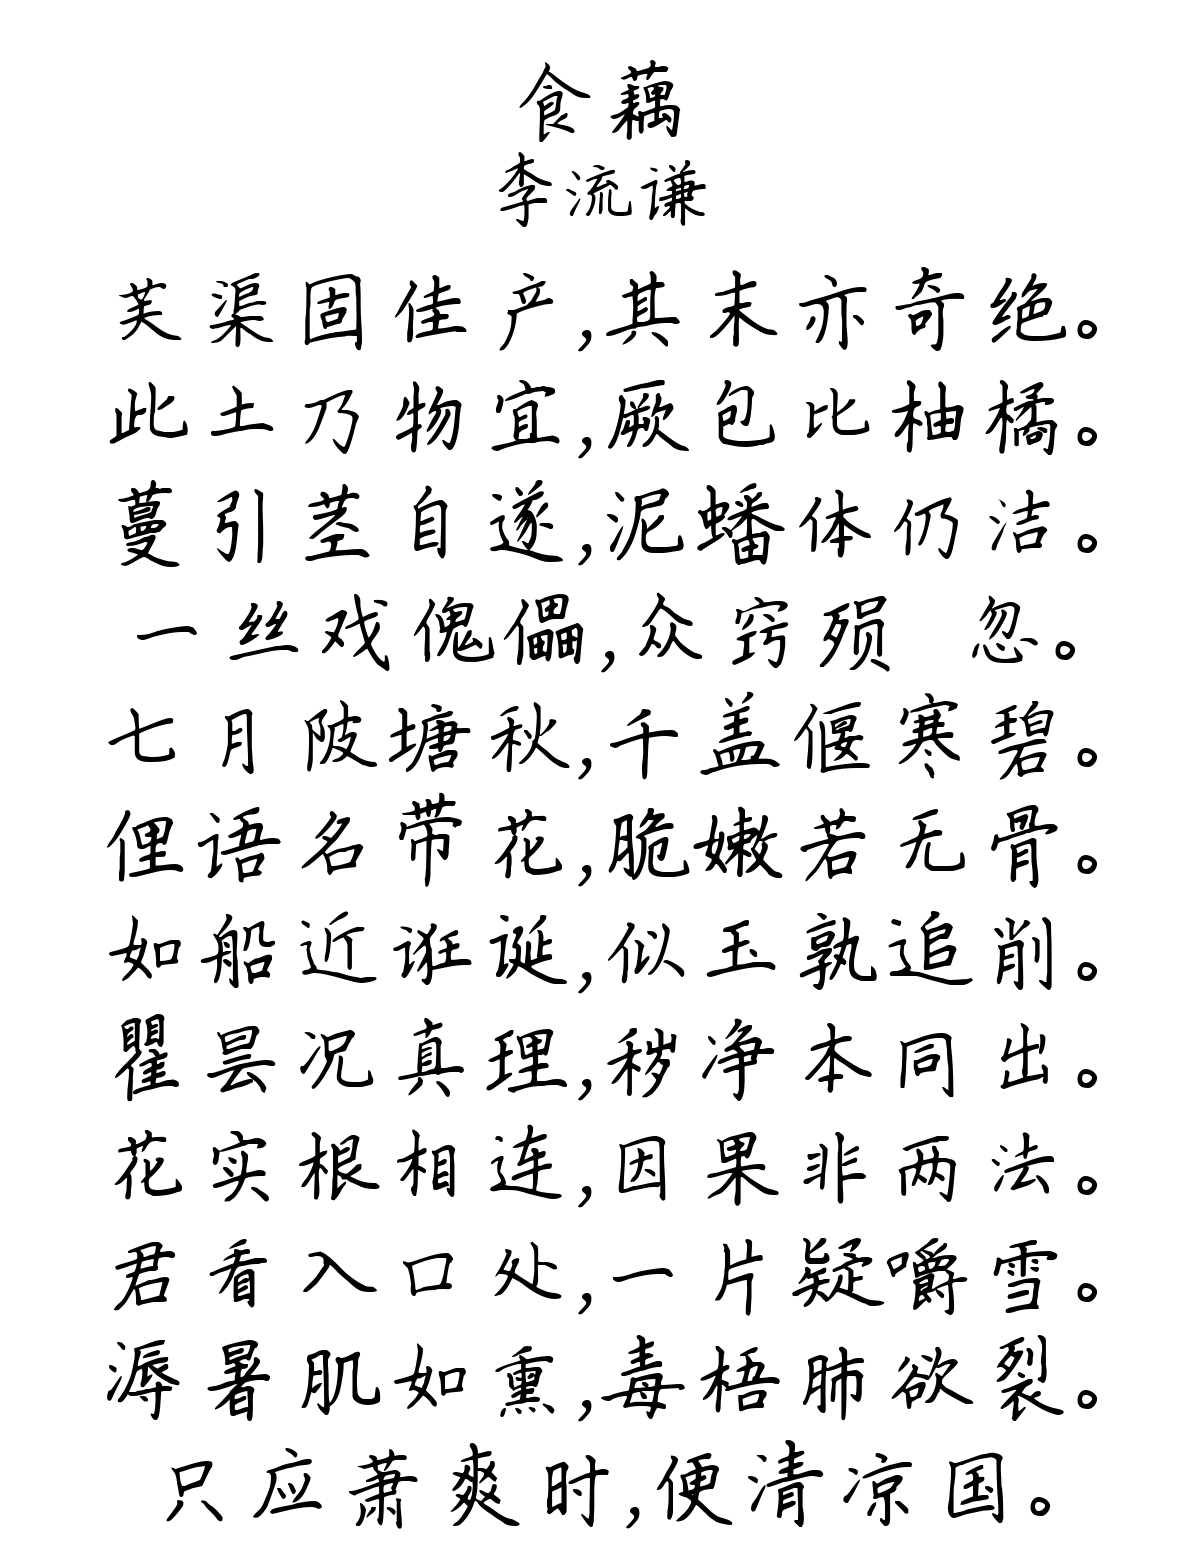 食藕
李流谦
芙渠固佳产,其末亦奇绝。
此土乃物宜,厥包比柚橘。
蔓引茎自遂,泥蟠体仍洁。
一丝戏傀儡,众窍殒 忽。
七月陂塘秋,千盖偃寒碧。
俚语名带花,脆嫩若无骨。
如船近诳诞,似玉孰追削。
瞿昙况真理,秽净本同出。
花实根相连,因果非两法。
君看入口处,一片疑嚼雪。
溽暑肌如熏,毒梧肺欲裂。
只应萧爽时,便清凉国。